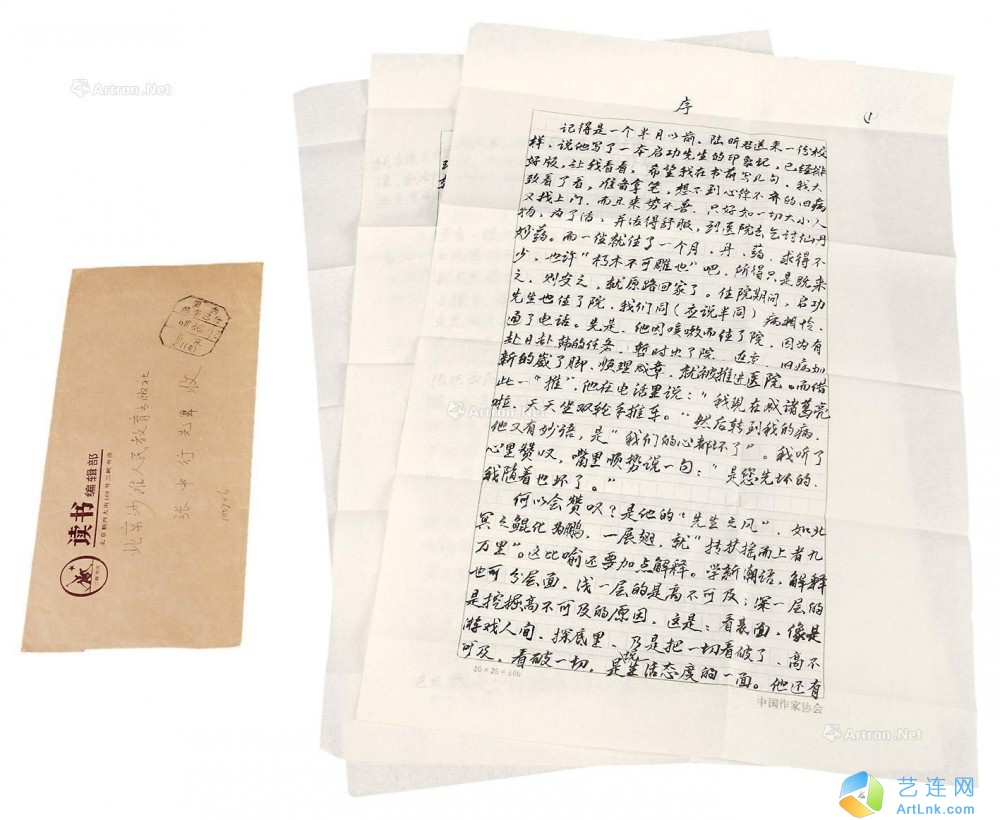 序
①
记得是一个半月以前，陆昕君送来一份校
样，说他写了一本启功先生的印象记，已经排
好版，让我看看，希望我在书前写几句。我大
致看了看，准备拿笔，想不到心律不齐的旧病
又找上门，而且来势不善，只好如一切大小人
物，为了活，并活得舒服，到医院去乞讨仙丹
妙药。而一住就住了一个月，丹、药，求得不
少，也许“朽木不可雕也”吧，所得只是既来
之，则安之，就原路回家了。住院期间，启功
先生也住了院，我们同（应说半同）病相怜，
通了电话。先是，他因咳嗽而住了院，因为有
赴日赴韩的任务，暂时出了院，近京，旧病加
新的崴了脚，顺理成章，就被推进医院。而借
此一“推”，他在电话里说：“我现在成诸葛亮
啦，天天坐双轮手推车。”然后转到我的病，
他又有妙语，是“我们的心都坏了”。我听了
心里赞叹，嘴里顺势说一句：“是您先坏的，
我随着也坏了。”
何以会赞叹？是他的“先生之风”，如北
冥之鲲化为鹏，一展翅，就“抟扶摇而上者九
万里”。这比喻还要加点解释。学新潮语，解释
也可分层面，浅一层的是高不可及；深一层的
是挖掘高不可及的原因，这是：看表面，像是
游戏人间，探底里，乃是把一切看破了，高不
可及。看破一切，是说生活态度的一面。他还有
20×25=500
中国作家协会
北京沙滩人民教育出版社
张中行先生 收
100706
读书 编辑部
北京朝内大街166号三联书店
Artron.Net
Artron.Net
Artron.Net
艺连网
ArtLnk.com